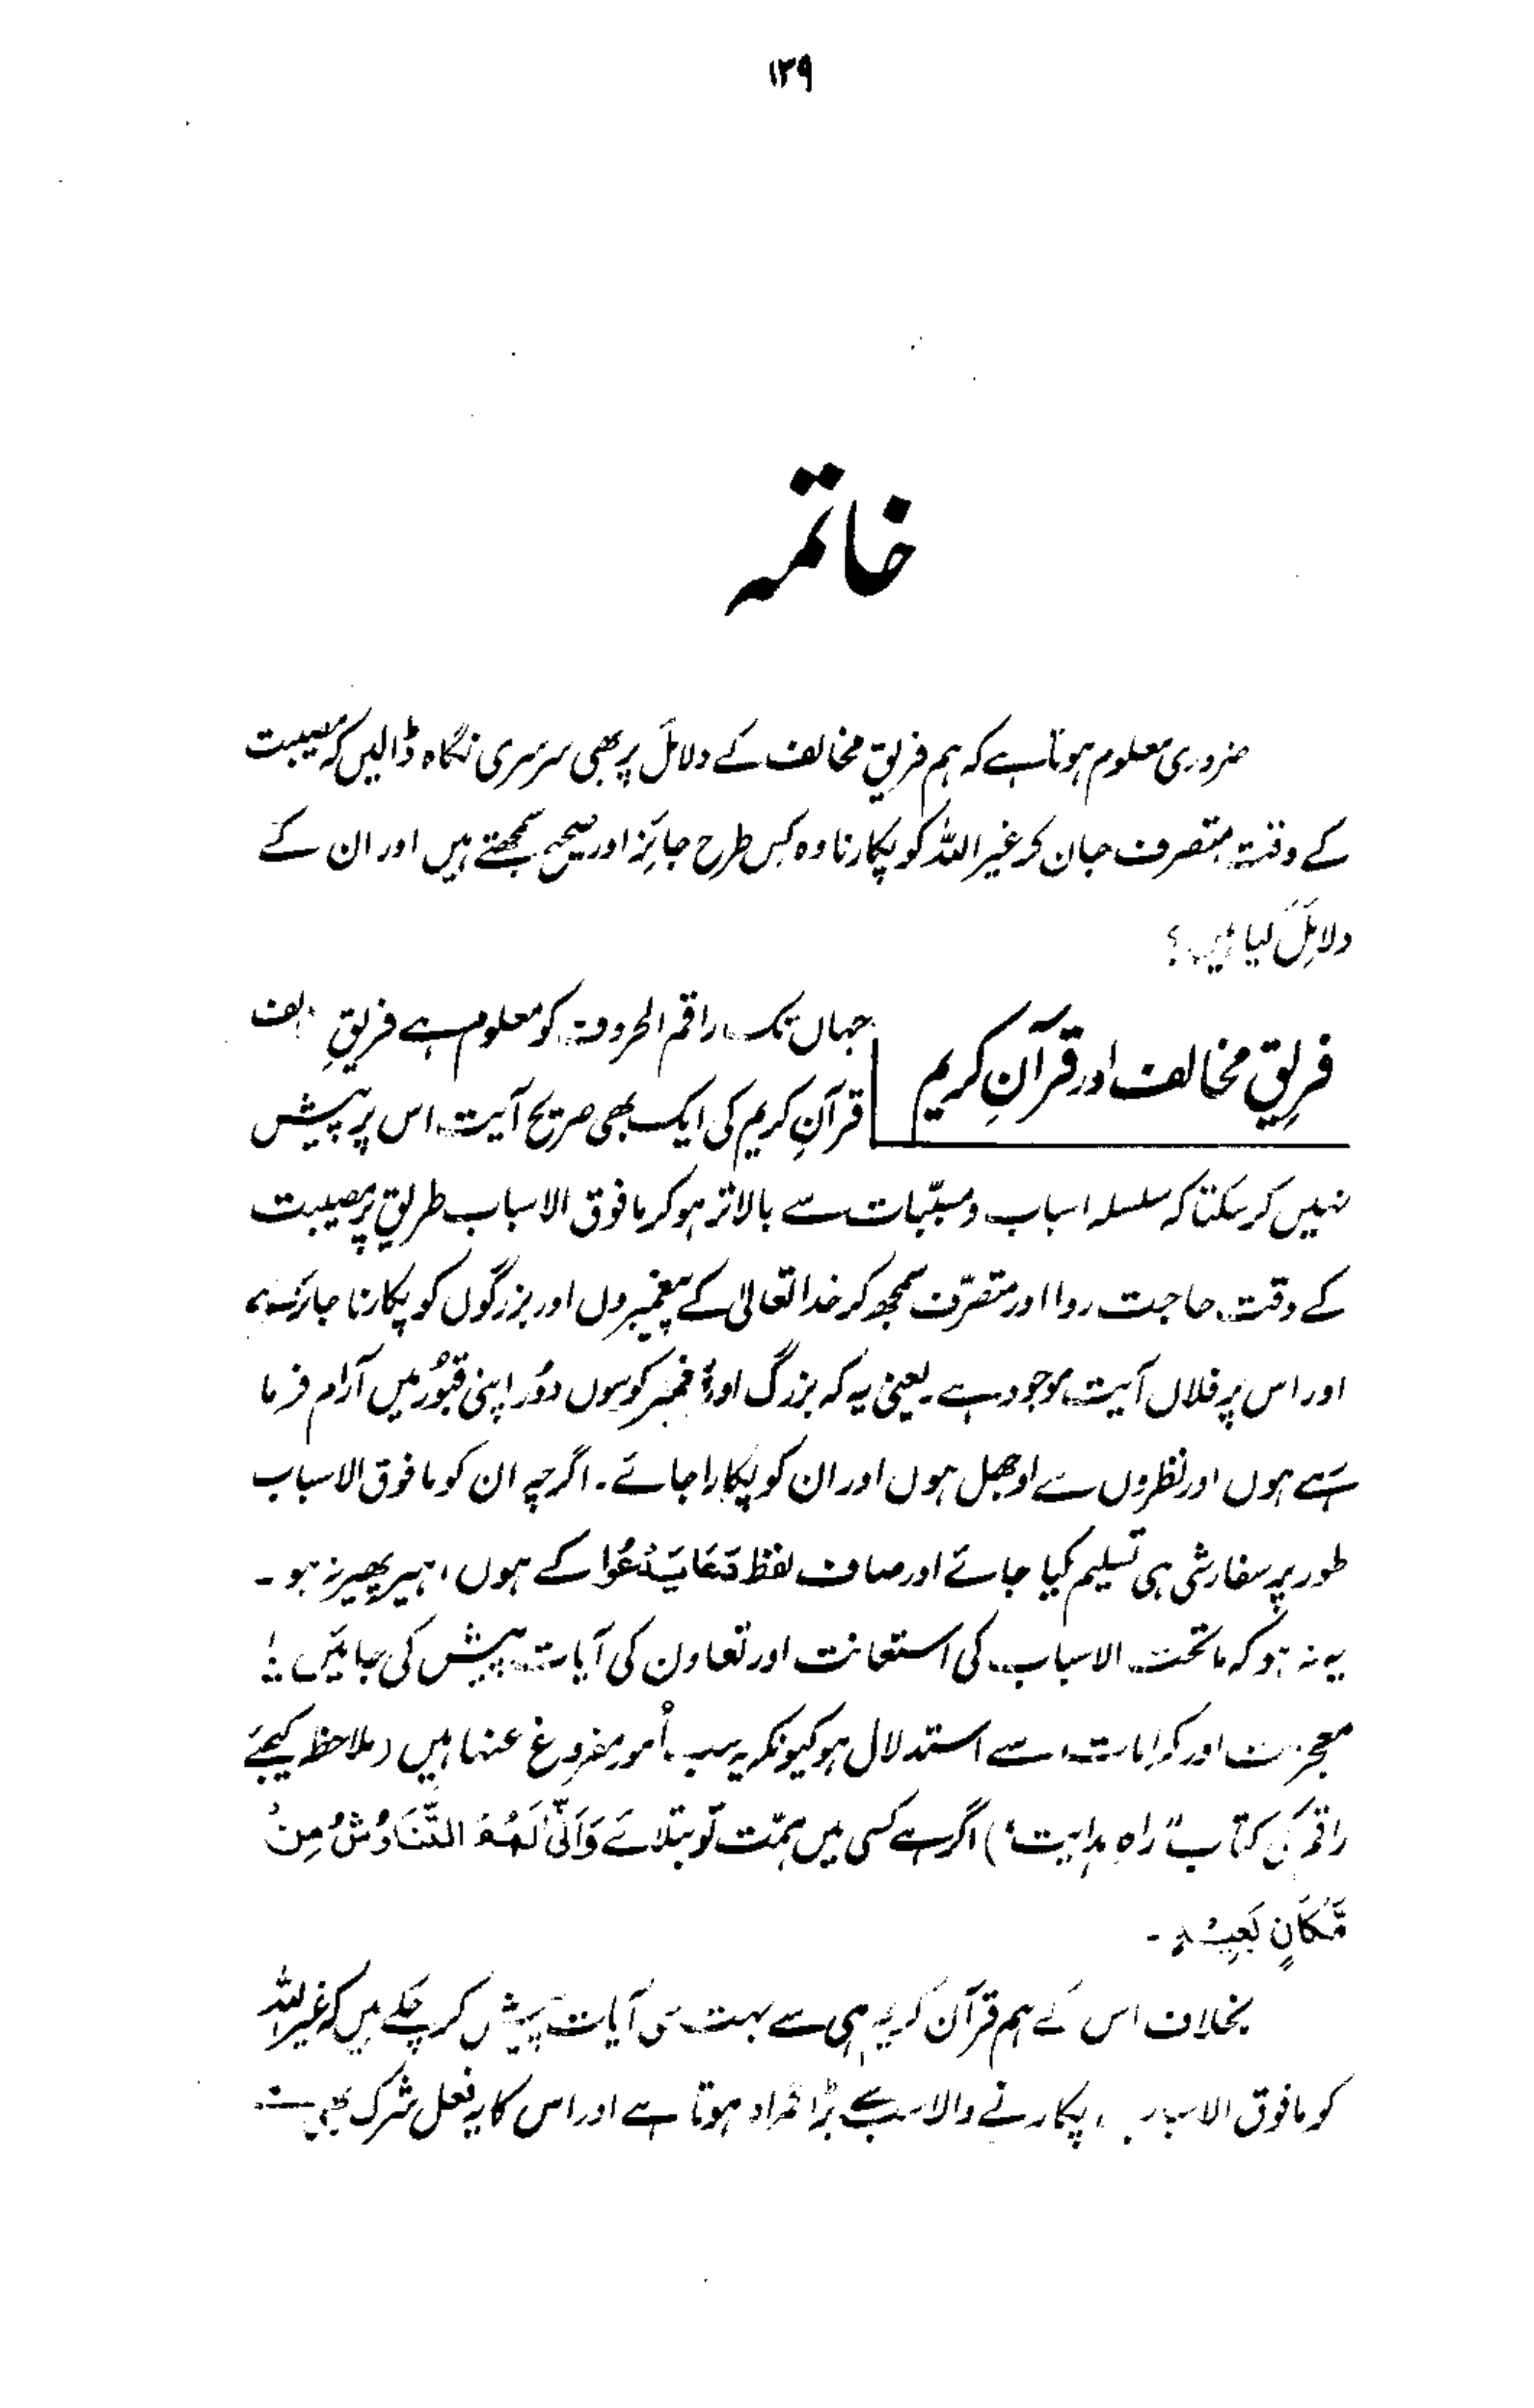 ۱۳۹
خاتمہ
ضروری معلوم ہوتا ہے کہ ہم فریقِ مخالف کے دلائل پر بھی سرسری نگاہ ڈالیں کہ مصیبت
کے وقت متصرف جان کر غیر اللہ کو پکارنا وہ کِس طرح جائز اور صحیح سمجھتے ہیں اور ان کے
دلائل کیا ہیں؟
فریقِ مخالف اور قرآنِ کریم
جہاں تک راقم الحروف کو معلوم ہے فریقِ
قرآنِ کریم کی ایک بھی صریح آیت اس پر پیش
نہیں کر سکتا کہ سلسلہ اسباب ومسبّبات سے بالاتر ہو کر مافوق الاسباب طریق پر مصیبت
کے وقت حاجت روا اور متصرّف سمجھ کر خدا تعالیٰ کے پیغمبروں اور بزرگوں کو پکارنا جائز ہے،
اور اس پر فلاں آیت موجود ہے۔ یعنی یہ کہ بزرگ اور کوسوں دُور اپنی قبُور میں آرام فرما
ہوں اور نظروں سے اوجھل ہوں اور ان کو پکارا جائے۔ اگرچہ ان کو مافوق الاسباب
طور پر سفارشی ہی تسلیم کیا جائے اور صاف لفظ دَعَا یَدْعُوْا کے ہوں، ہیر پھیر نہ ہو۔
یہ نہ ہو کہ ماتحت الاسباب کی استعانت اور تعاون کی آیات پیش کی جائیں یا
معجزات اور کرامات سے استدلال ہو کیونکہ یہ سب اُمور مفروغ عنہا ہیں (ملاحظہ کیجئے
راقم کی کتاب "راہِ ہدایت") اگر ہے کسی میں ہمّت تو بتلائے وَاَنّٰی لَھُمُ التَّنَاوُشُ مِنْ
مَّکَانٍ بَعِیْدٍ۔
بخلاف اس کے ہم قرآن کریم ہی سے بہت سی آیات پیش کر چکے ہیں کہ غیر اللہ
کو مافوق الاسباب پکارنے والا سب سے بڑا گمراہ ہوتا ہے اور اس کا یہ فعل شرک بھی ہے